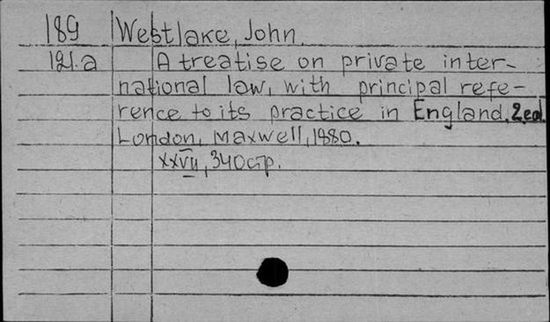 189 Westlake, John.
121.a A treatise on private inter-
national law, with principal refe-
rence to its practice in England, 2ed.
London, Maxwell, 1880.
xxvii, 340стр.